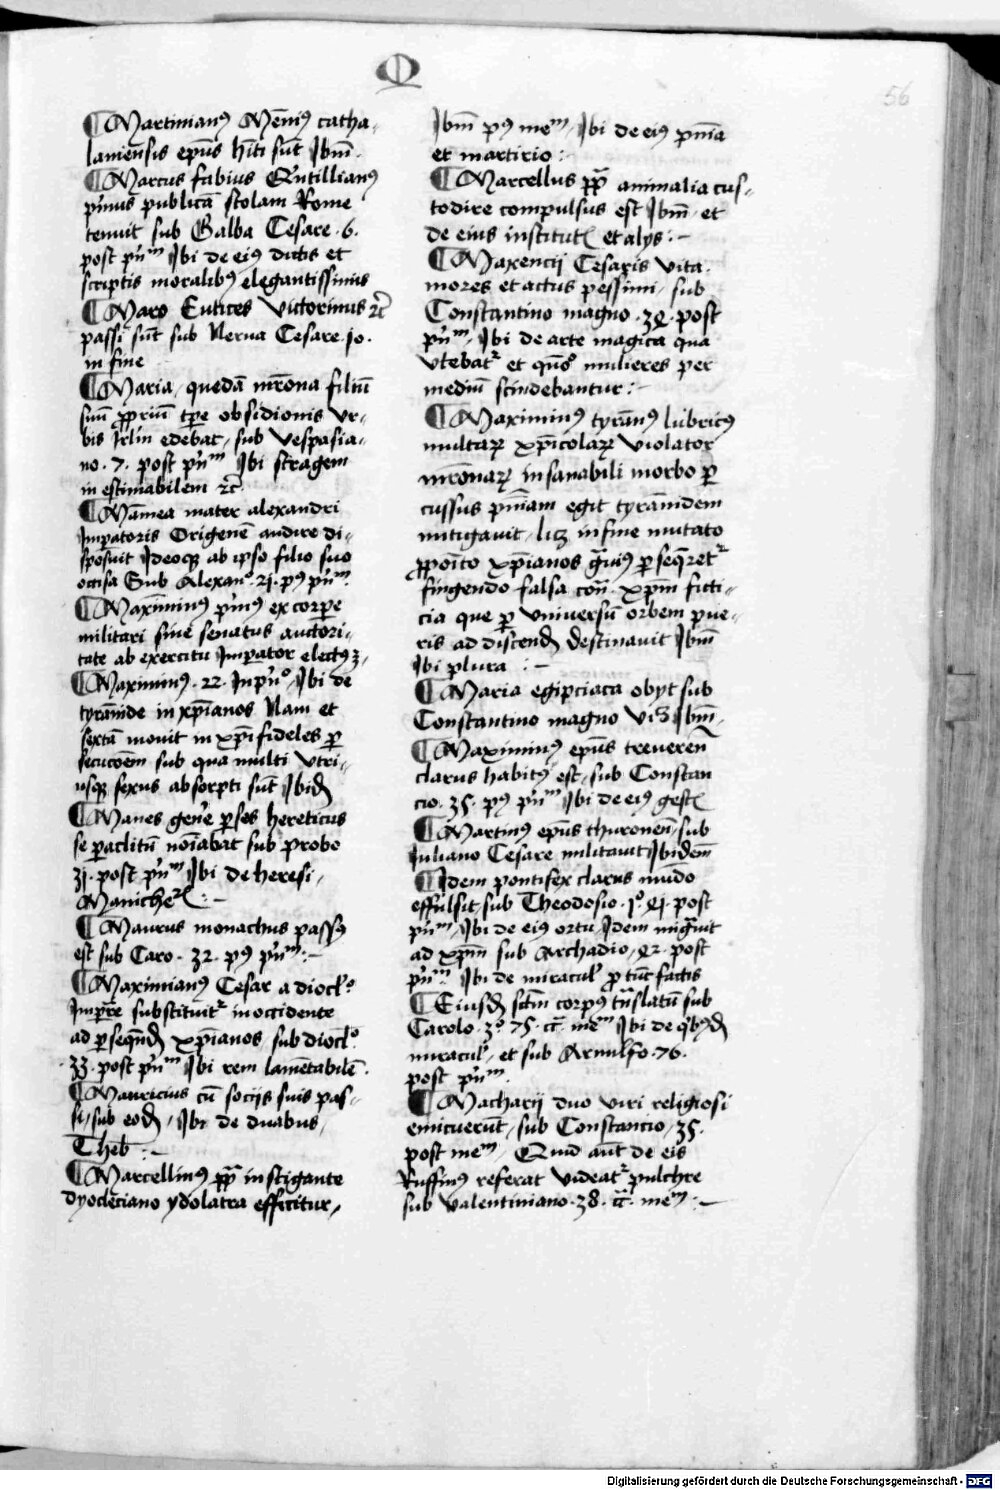 M
56
¶ Martinianꝰ Mēniꝰ catha-
laniensis ep̄us h̄iti sūt Ibm̄.
¶ Marcus fabius Qntillianꝰ
p͛mus publicā scolam Rome
tenuit sub Galba Cesare .6.
post pn̄m Ibi de eiꝰ dictis et
scriptis moralibꝰ elegantissimis
¶ Maro Eutices Victorinus ⁊c̄
passi sūt sub Nerua Cesare .10.
in fine
¶ Maria, quedā mr̄ona filiū
suū ꝓpriū tp̄e obsidionis vr-
bis Irl̄m edebat, sub vespasia-
no .7. post pn̄m Ibi stragem
inestimabilem ⁊c̄
¶ Māmea mater alexandri
Impatoris Origenē audire di-
sposuit Ideoqꝫ ab ipso filio suo
occisa Sub Alexanº .21. pꝰ pn̄m
¶ Maximinꝰ p͛mꝰ ex corpe
militari sine senatus auctori-
tate ab exercitu Imperator electꝰ ꝫ,
¶ Maximinꝰ .22. In pn̄º, Ibi de
tyrānide in xp̄ianos Nam et
sextā mouit in xp̄i fideles ꝑ
secucōem sub qua multi vtri-
usqꝫ sexus absorpti sūt Ibid̄
¶ Manes gen͛e ꝑses hereticus
se ꝑaclitū noīabat sub probo
31. post pn̄m Ibi de heresi,
Maniche⁊ :-
¶ Maurus monachus passꝰ
est sub Caro .32. pꝰ pn̄m :-
¶ Maximianꝰ Cesar a diocl̄º
Imp̄re substituit᷑ in occidente
ad ꝑseqn̄d̄ xp̄ianos, sub diocl̄º
.33. post pn̄m Ibi rem lamētabilē.
¶ Mauricius cū socijs suis pas-
si, sub eod̄, Ibi de duabus,
Theb̄ :-
¶ Marcellinꝰ pp̄ instigante
dyocleciano ydolatra efficitur,
Ibm̄ pꝰ mem, Ibi de eiꝰ pn̄ia
et martirio :-
¶ Marcellus pp̄ animalia cus-
todire compulsus est Ibm̄, et
de eius institut͛ et alijs :-
¶ Maxencij Cesaris vita.
mores et actus pessimi, sub
Constantino magno .34. post
pn̄m, Ibi de arte magica qua
vtebat᷑ et qn̄º mulieres per
mediū scindebantur :-
¶ Maximinꝰ tyrānꝰ lubricꝰ
multaꝝ xp̄icolaꝝ violator
mr̄onaꝝ insanabili morbo ꝑ
cussus pn̄iam egit tyrānidem
mitigauit, lꝫ in fine mutato
ꝓpoīto xp̄ianos gͣuiꝰ ꝑseqret᷑
fingendo falsa con̄. xp̄m ficti-
cia que ꝑ vniuersū orbem pue-
ris ad discend̄ destinauit Ibm̄
Ibi plura :-
¶ Maria egipciaca obyt sub
Constantino magno vꝫ Ibm̄,
¶ Maximinꝰ ep̄us treueren̄
clarus habitꝰ est, sub Constan
cio .35. pꝰ pn̄m Ibi de eiꝰ gest͛
¶ Martinꝰ ep̄us thuronen̄, sub
Iuliano Cesare militauit Ibidem̄
¶ Idem pontifex clarus mūdo
effulsit, sub Theodosio .1º. 41. post
pn̄m, Ibi de eiꝰ ortu, Idem migͣuit
ad xp̄m sub Archadio, 42. post
pn̄m Ibi de miracul͛ ꝓ tūc factis
¶ Eiusd̄ sc̄tm corpꝰ tn̄slatū sub
Carolo .3º. 75. cͣ. mem Ibi de qͥbꝰd̄
miracul͛, et sub Arnulfo .76.
post pn̄m.
¶ Macharij duo viri religiosi
emicuerūt, sub Constancio, 35.
post mem, Quid aūt de eis
Ruffinꝰ referat videat᷑ pulchre
sub Valentiniano .38. cͣ. mem :-
Digitalisierung gefördert durch die Deutsche Forschungsgemeinschaft - DFG